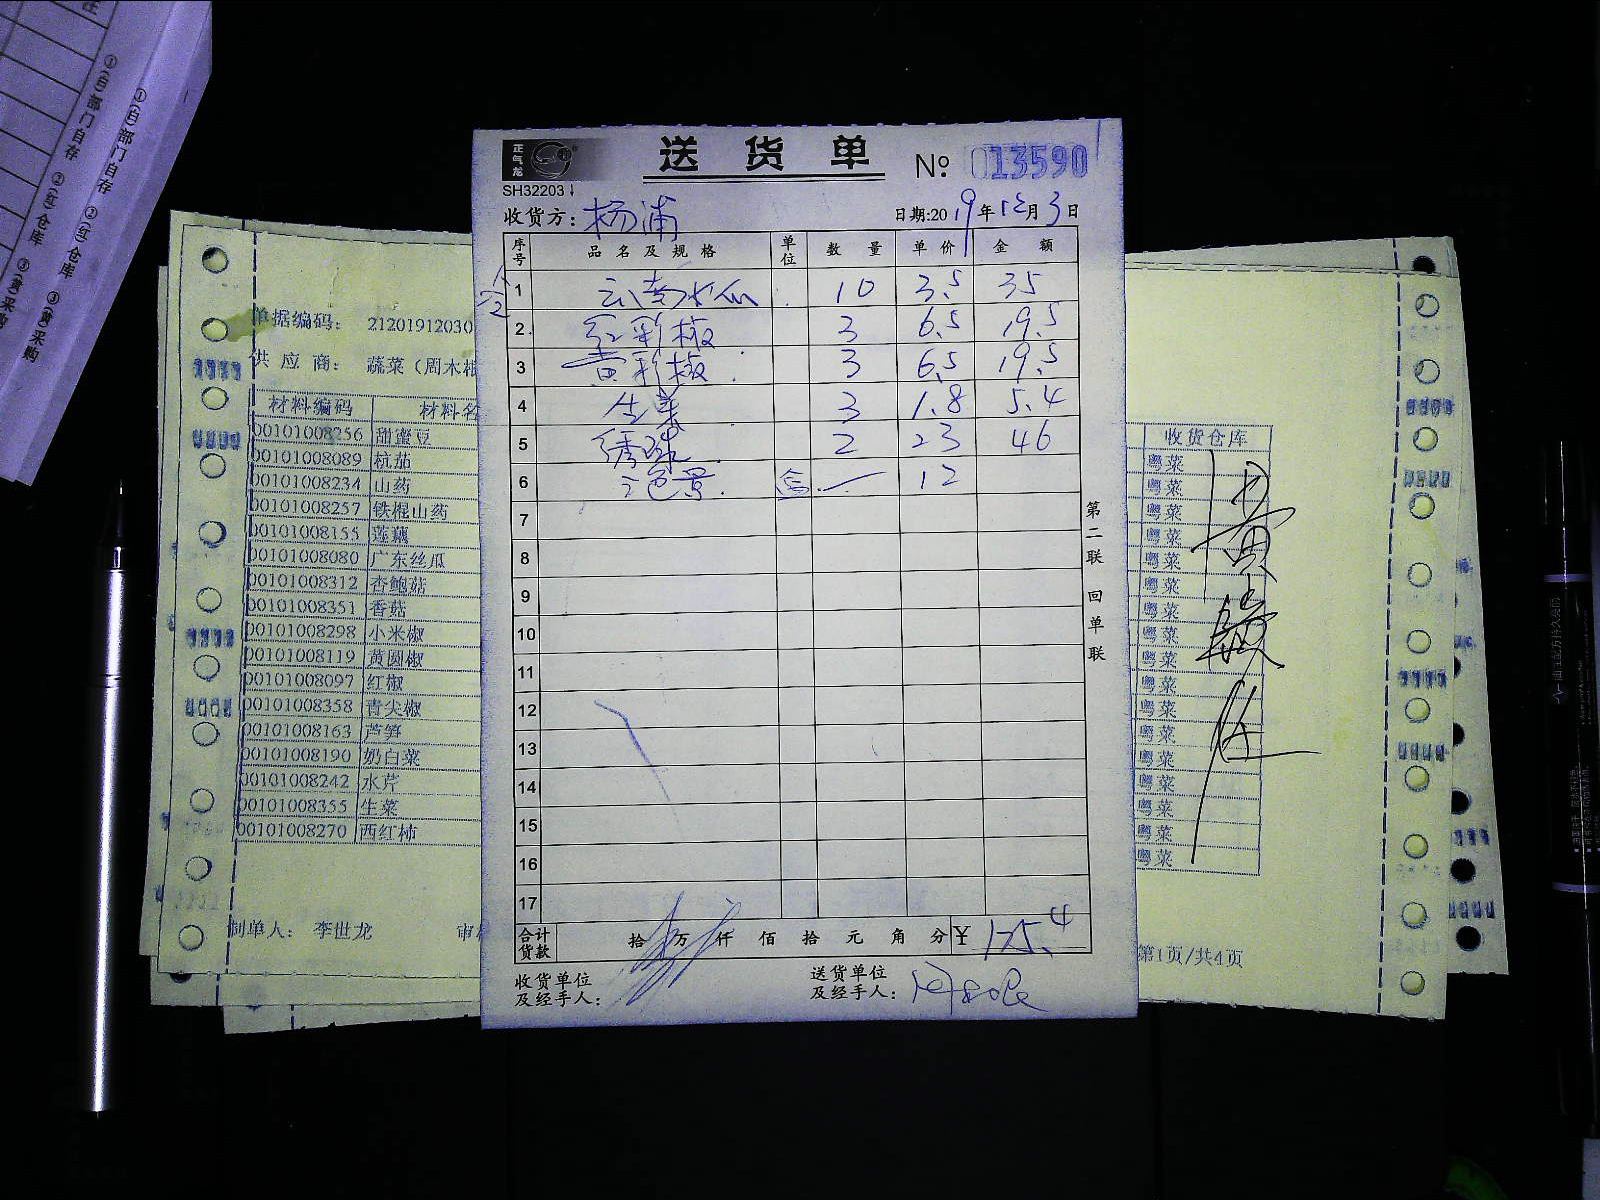 注
①(白)部门自存 ②(红)仓库 ③(黄)采购
①(白)部门自存 ②(红)仓库 ③(黄)采购
正气龙
送 货 单
№ 013590
SH32203
收货方: 杨浦
日期:2019年12月3日
序号 品名及规格 单位 数量 单价 金额
1 云南水瓜 10 3.5 35
2 红彩椒 3 6.5 19.5
3 黄彩椒 3 6.5 19.5
4 生菜 3 1.8 5.4
5 绣球 2 23 46
6 12
7
8
9
10
11
12
13
14
15
16
17
合计货款 拾 万 仟 佰 拾 元 角 分 ¥ 125.4
收货单位及经手人:
送货单位及经手人:
第二联 回单联
单据编码: 21201912030
供 应 商: 蔬菜(周木
材料编码 材料名
00101008256 甜蜜豆
00101008089 杭茄
00101008234 山药
00101008257 铁棍山药
00101008155 莲藕
00101008080 广东丝瓜
00101008312 杏鲍菇
00101008351 香菇
00101008298 小米椒
00101008119 黄圆椒
00101008097 红椒
00101008358 青尖椒
00101008163 芦笋
00101008190 奶白菜
00101008242 水芹
00101008355 生菜
00101008270 西红柿
制单人: 李世龙
审
收货仓库
粤菜
粤菜
粤菜
粤菜
粤菜
粤菜
粤菜
粤菜
粤菜
粤菜
粤菜
粤菜
粤菜
粤菜
粤菜
粤菜
粤菜
第1页/共4页